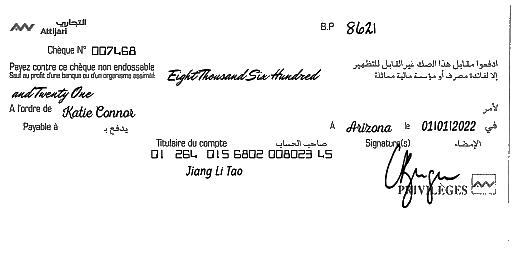 التجاري
Attijari
B.P 8621
Chèque N° 007468
Payez contre ce chèque non endossable
Sauf au profit d'une banque ou d'un organisme assimilé
Eight Thousand Six Hundred
ادفعوا مقابل هذا الصك غير القابل للتظهير
إلا لفائدة مصرف أو مؤسسة مالية مماثلة
and Twenty One
A l'ordre de Katie Connor لأمر
Payable à يدفع بـ
A Arizona le 01/01/2022 في
Titulaire du compte صاحب الحساب
Signature(s) الإمضاء
01 264 015 6802 008023 45
Jiang Li Tao
PRIVILÈGES